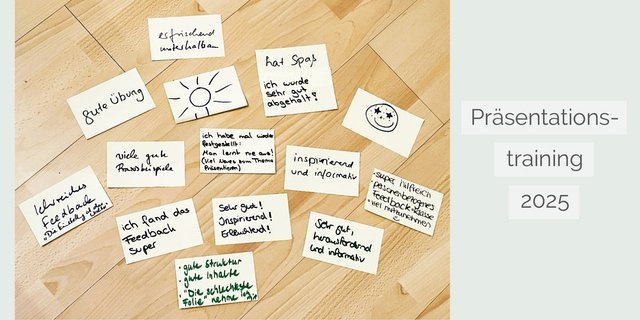 erfrischend
unterhaltsam
hat Spaß
ich wurde
sehr gut
abgeholt!
gute Übung
ich habe mal wieder
festgestellt:
Man lernt nie aus!
(Viel Neues zum Thema
Präsentieren)
viele gute
Praxisbeispiele
inspirierend
und informativ
Lehrreiches
Feedback
ich fand das
Feedback
super
Sehr gut!
Inspirierend!
super hilfreich
personenbezogenes
Feedback
viel mitzunehmen
Sehr gut,
herausfordernd
und informativ
• gute Struktur
• gute Inhalte
• "Die schlechteste
Folie" nehme ich
mit
Präsentations-
training
2025